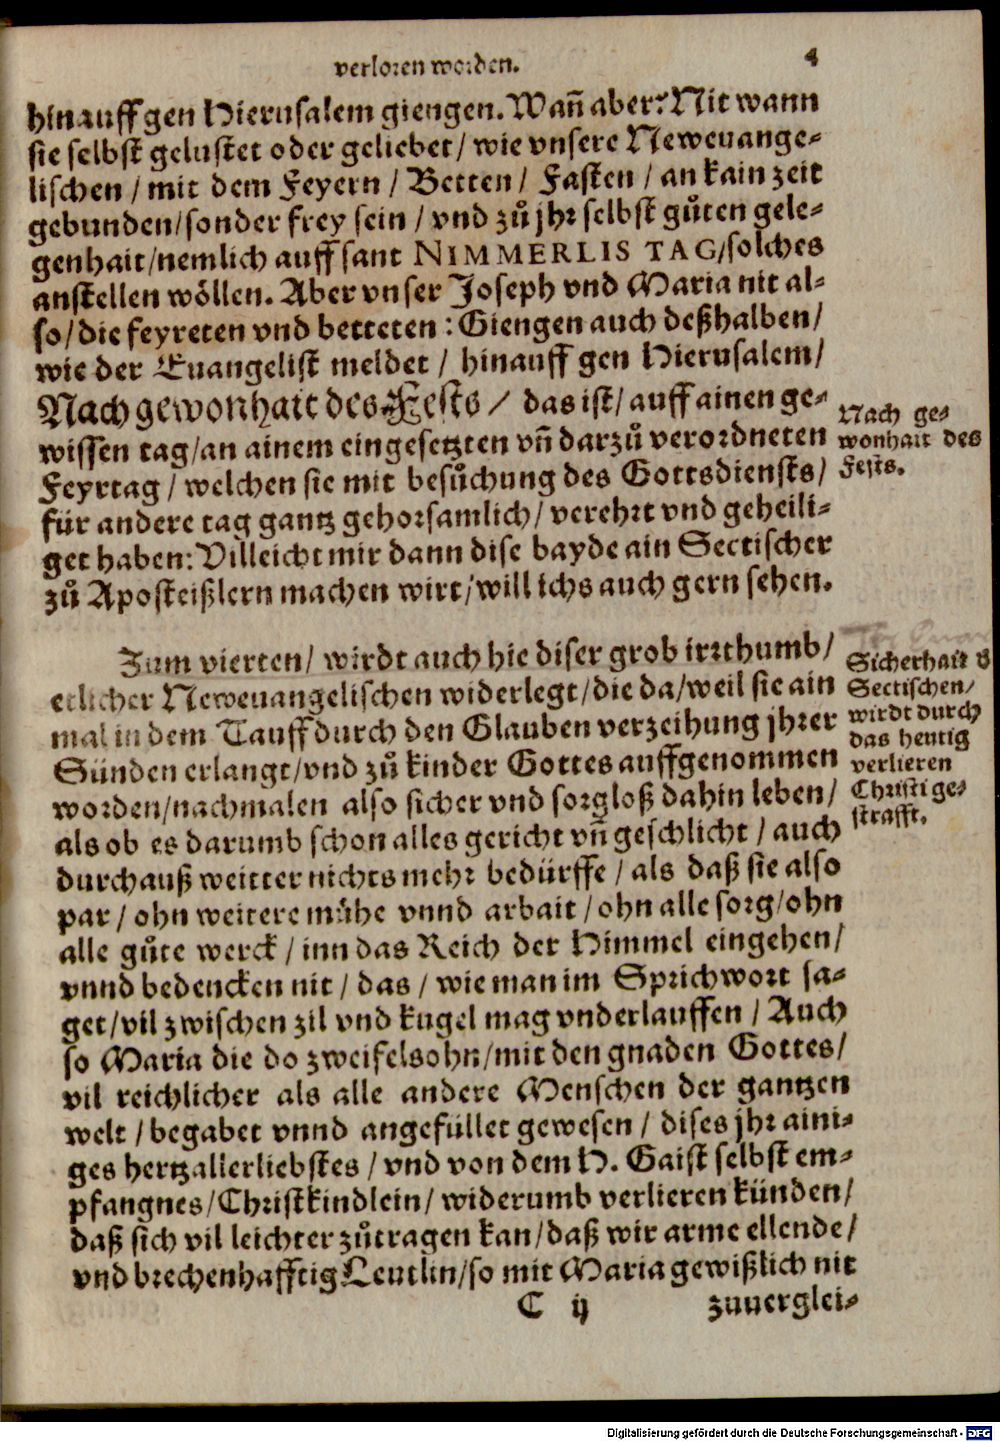 verloren worden. 4
hinauff gen Hierusalem giengen. Wañ aber? Nit wann
sie selbst gelustet oder geliebet / wie vnsere Neweuange-
lischen / mit dem Feyern / Betten / Fasten / an kain zeit
gebunden / sonder frey sein / vnd zů jhr selbst gůten gele-
genhait / nemlich auff sant NIMMERLIS TAG / solches
anstellen wöllen. Aber vnser Joseph vnd Maria nit al-
so / die feyreten vnd betteten : Giengen auch deßhalben /
wie der Euangelist meldet / hinauff gen Hierusalem /
Nach gewonhait des Fests / das ist / auff ainen ge-
wissen tag / an ainem eingesetzten vñ darzů verordneten
Feyrtag / welchen sie mit besůchung des Gottsdiensts /
für andere tag gantz gehorsamlich / verehrt vnd geheili-
get haben: Villeicht mir dann dise bayde ain Sectischer
zů Aposteißlern machen wirt / will ichs auch gern sehen.
Nach ge-
wonhait des
Fests.
Zum vierten / wirdt auch hie diser grob irrthumb /
etlicher Neweuangelischen widerlegt / die da / weil sie ain
mal in dem Tauff durch den Glauben verzeihung jhrer
Sünden erlangt / vnd zů kinder Gottes auffgenommen
worden / nachmalen also sicher vnd sorgloß dahin leben /
als ob es darumb schon alles gericht vñ geschlicht / auch
durchauß weitter nichts mehr bedürffe / als daß sie also
par / ohn weitere mühe vnnd arbait / ohn alle sorg / ohn
alle gůte werck / inn das Reich der Himmel eingehen /
vnnd bedencken nit / das / wie man im Sprichwort sa-
get / vil zwischen zil vnd kugel mag vnderlauffen / Auch
so Maria die do zweifelsohn / mit den gnaden Gottes /
vil reichlicher als alle andere Menschen der gantzen
welt / begabet vnnd angefüllet gewesen / dises jhr aini-
ges hertzallerliebstes / vnd von dem H. Gaist selbst em-
pfangnes / Christkindlein / widerumb verlieren künden /
daß sich vil leichter zůtragen kan / daß wir arme ellende /
vnd brechenhafftig Leutlin / so mit Maria gewißlich nit
Sicherhait d
Sectischen /
wirdt durch
das heutig
verlieren
Christi ge-
strafft.
C ij zuuerglei-
Digitalisierung gefördert durch die Deutsche Forschungsgemeinschaft - DFG